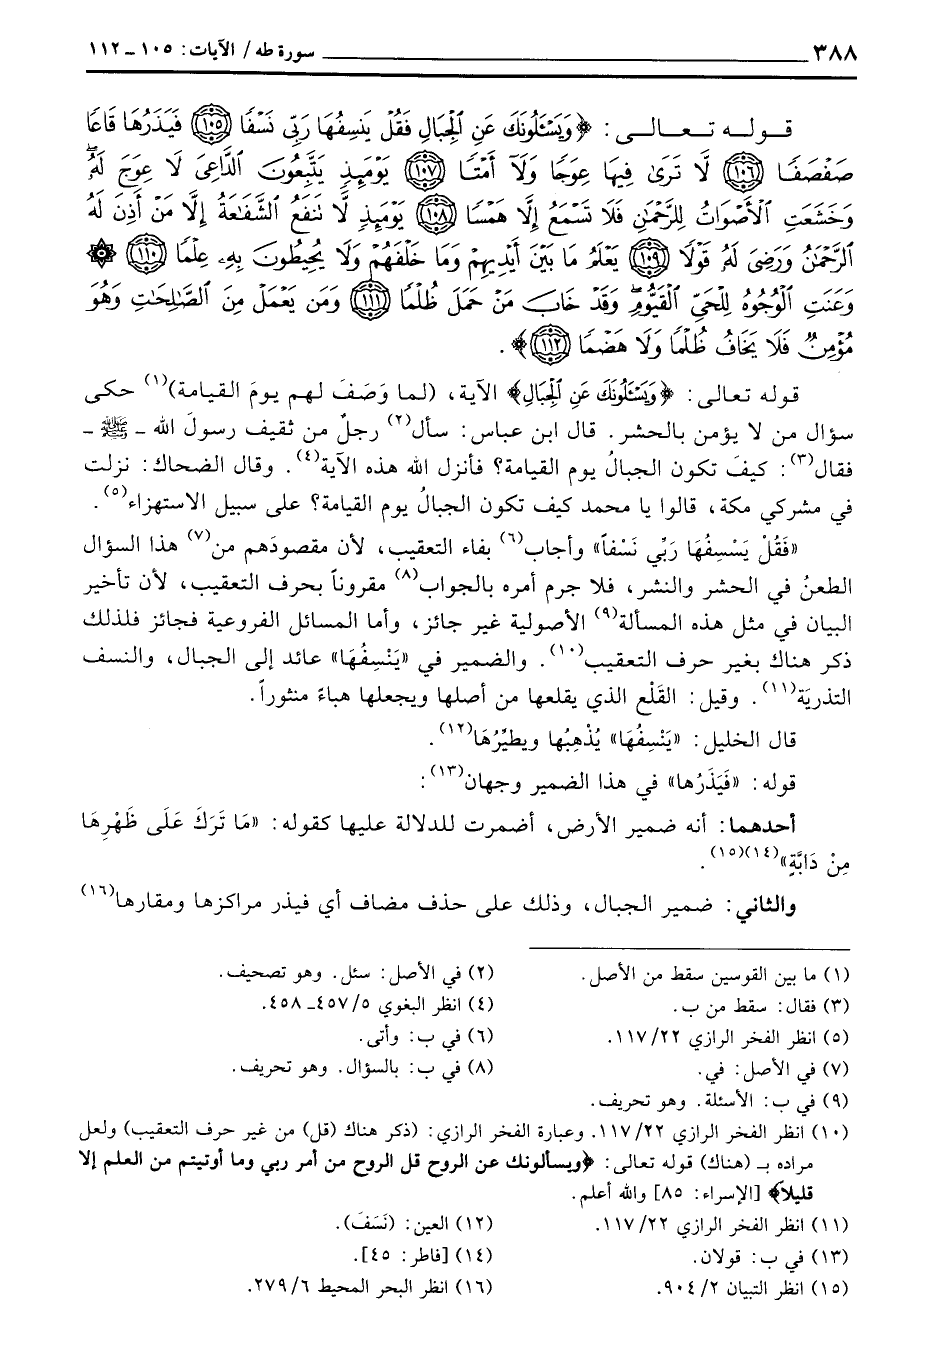 ٣٨٨ سورة طه / الآيات: ١٠٥ - ١١٢
قوله تعالى: ﴿وَيَسْـَٔلُونَكَ عَنِ ٱلْجِبَالِ فَقُلْ يَنسِفُهَا رَبِّى نَسْفًا ﴿١٠٥﴾ فَيَذَرُهَا قَاعًا
صَفْصَفًا ﴿١٠٦﴾ لَّا تَرَىٰ فِيهَا عِوَجًا وَلَآ أَمْتًا ﴿١٠٧﴾ يَوْمَئِذٍ يَتَّبِعُونَ ٱلدَّاعِىَ لَا عِوَجَ لَهُۥ ۖ
وَخَشَعَتِ ٱلْأَصْوَاتُ لِلرَّحْمَٰنِ فَلَا تَسْمَعُ إِلَّا هَمْسًا ﴿١٠٨﴾ يَوْمَئِذٍ لَّا تَنفَعُ ٱلشَّفَٰعَةُ إِلَّا مَنْ أَذِنَ لَهُ
ٱلرَّحْمَٰنُ وَرَضِىَ لَهُۥ قَوْلًا ﴿١٠٩﴾ يَعْلَمُ مَا بَيْنَ أَيْدِيهِمْ وَمَا خَلْفَهُمْ وَلَا يُحِيطُونَ بِهِۦ عِلْمًا ﴿١١٠﴾ ۞
وَعَنَتِ ٱلْوُجُوهُ لِلْحَىِّ ٱلْقَيُّومِ ۖ وَقَدْ خَابَ مَنْ حَمَلَ ظُلْمًا ﴿١١١﴾ وَمَن يَعْمَلْ مِنَ ٱلصَّٰلِحَٰتِ وَهُوَ
مُؤْمِنٌ فَلَا يَخَافُ ظُلْمًا وَلَا هَضْمًا ﴿١١٢﴾﴾.
قوله تعالى: ﴿وَيَسْـَٔلُونَكَ عَنِ ٱلْجِبَالِ﴾ الآية، (لما وَصَفَ لهم يومَ القيامة)(١) حكى
سؤال من لا يؤمن بالحشر. قال ابن عباس: سأل(٢) رجلٌ من ثقيف رسولَ الله ـ ﷺ ـ
فقال(٣): كيفَ تكون الجبالُ يوم القيامة؟ فأنزل الله هذه الآية(٤). وقال الضحاك: نزلت
في مشركي مكة، قالوا يا محمد كيف تكون الجبالُ يوم القيامة؟ على سبيل الاستهزاء(٥).
«فَقُلْ يَنْسِفُهَا رَبِّي نَسْفاً» وأجاب(٦) بفاء التعقيب، لأن مقصودَهم من(٧) هذا السؤال
الطعنُ في الحشر والنشر، فلا جرم أمره بالجواب(٨) مقروناً بحرف التعقيب، لأن تأخير
البيان في مثل هذه المسألة(٩) الأصولية غير جائز، وأما المسائل الفروعية فجائز فلذلك
ذكر هناك بغير حرف التعقيب(١٠). والضمير في «يَنْسِفُهَا» عائد إلى الجبال، والنسف
التذريَة(١١). وقيل: القَلْع الذي يقلعها من أصلها ويجعلها هباءً منثوراً.
قال الخليل: «يَنْسِفُهَا» يُذْهِبُها ويطيِّرُهَا(١٢).
قوله: «فَيَذَرُها» في هذا الضمير وجهان(١٣):
أحدهما: أنه ضمير الأرض، أضمرت للدلالة عليها كقوله: «مَا تَرَكَ عَلَى ظَهْرِهَا
مِنْ دَابَّةٍ»(١٤)(١٥).
والثاني: ضمير الجبال، وذلك على حذف مضاف أي فيذر مراكزها ومقارها(١٦)
(١) ما بين القوسين سقط من الأصل. (٢) في الأصل: سئل. وهو تصحيف.
(٣) فقال: سقط من ب. (٤) انظر البغوي ٥/٤٥٧ـ ٤٥٨.
(٥) انظر الفخر الرازي ٢٢/١١٧. (٦) في ب: وأتى.
(٧) في الأصل: في. (٨) في ب: بالسؤال. وهو تحريف.
(٩) في ب: الأسئلة. وهو تحريف.
(١٠) انظر الفخر الرازي ٢٢/١١٧. وعبارة الفخر الرازي: (ذكر هناك (قل) من غير حرف التعقيب) ولعل
مراده بـ (هناك) قوله تعالى: ﴿ويسألونك عن الروح قل الروح من أمر ربي وما أوتيتم من العلم إلا
قليلاً﴾ [الإسراء: ٨٥] والله أعلم.
(١١) انظر الفخر الرازي ٢٢/١١٧. (١٢) العين: (نَسَفَ).
(١٣) في ب: قولان. (١٤) [فاطر: ٤٥].
(١٥) انظر التبيان ٢/٩٠٤. (١٦) انظر البحر المحيط ٦/٢٧٩.